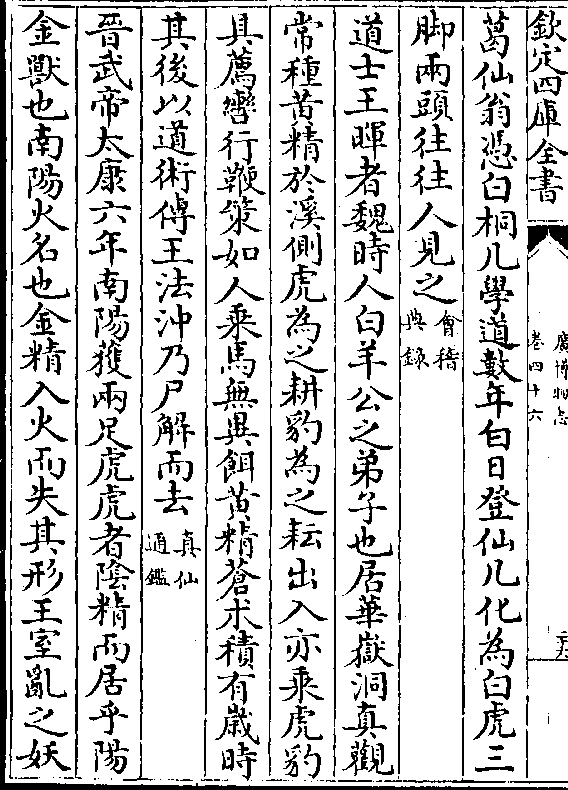 欽定四庫全書
廣博物志
卷四十六
葛仙翁憑白桐几學道數年白日登仙几化為白虎三
脚兩頭往往人見之會稽典錄
道士王暉者魏時人白羊公之弟子也居華嶽洞真觀
常種黃精於溪側虎為之耕豹為之耘出入亦乘虎豹
具薦轡行鞭策如人乘馬無異餌黃精蒼朮積有歲時
其後以道術傳王法沖乃尸解而去真仙通鑑
晉武帝太康六年南陽獲兩足虎虎者陰精而居乎陽
金獸也南陽火名也金精入火而失其形王室亂之妖